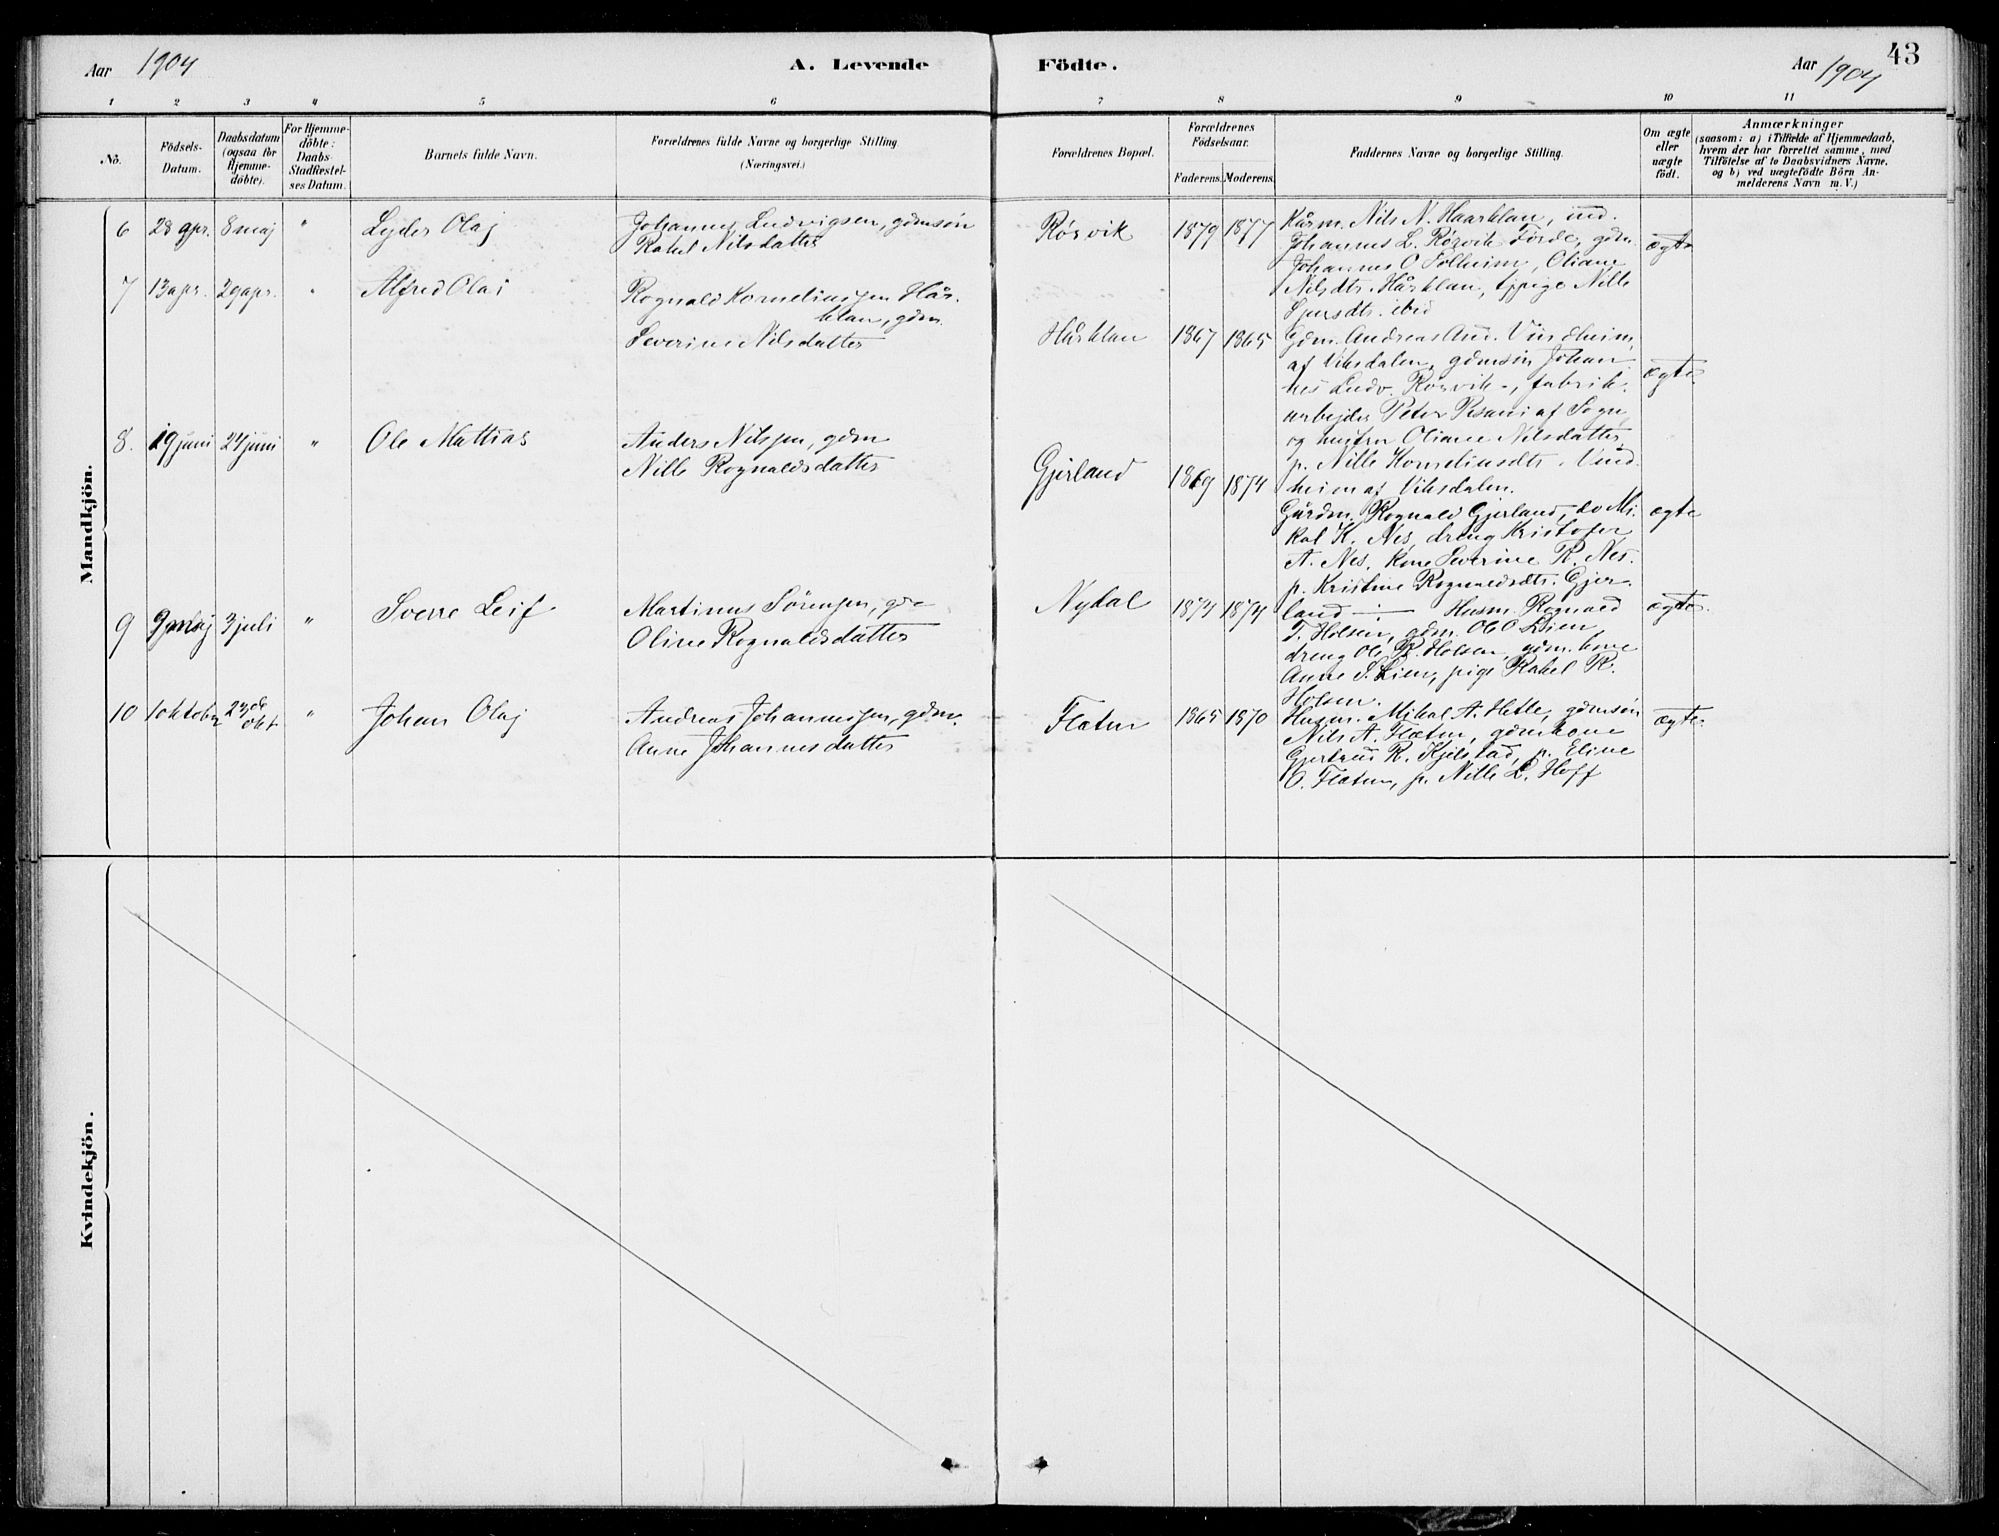 Aar 1904
A. Levende
Födte.
Aar 1904
43
1 2 3 4 5 6 7 8 9 10 11
No.
Födsels-
Datum.
Daabsdatum
(ogsaa for
Hjemme-
döbte).
For Hjemme-
döbte:
Daabs-
Stadfæstel-
ses Datum.
Barnets fulde Navn.
Forældrenes fulde Navne og borgerlige Stilling
(Næringsvei.)
Forældrenes Bopæl.
Forældrenes
Födselsaar.
Faderens. Moderens.
Faddernes Navne og borgerlige Stilling.
Om ægte
eller
uægte
födt.
Anmærkninger
(saasom: a) i Tilfælde af Hjemmedaab,
hvem der har forrettet samme, med
Tilföielse af to Daabsvidners Navne,
og b) ved uægtefödte Börn An-
melderens Navn m. V.)
Mandkjön.
6 28 apr. 8 maj " Lyder Olaj
Johannes Ludvigsen, gdmsøn
Rakel Nilsdatter
Rørvik 1879 1877
Kårm. Nils N. Haarklau, ind.
Johannes L. Rørvik Førde, gdm.
Johannes O Solheim, Oliane
Nilsdtr. Hårklau, tjpige Nille
Sjursdtr. ibid
ægte
7 13 apr. 29 apr. " Alfred Olai
Rognald Korneliussen Hår-
klau, gdm.
Severine Nilsdatter
Hårklau 1867 1865
Gdm. Andreas And. Vindheim
af Viksdalen, gdmsøn Johan-
nes Ludv. Rørvik -, fabrik-
arbejder Peter Pesani af Sogn,
og hustru Oliane Nilsdatter,
p. Nille Korneliusdtr. Vind-
heim af Viksdalen.
ægte
8. 19 juni 24 juni " Ole Mattias
Anders Nilssen, gdm
Nille Rognaldsdatter
Gjerland 1869 1874
Gårdm. Rognald Gjerland, do Mi-
kal K. Nes, dreng Kristofer
A. Nes, kone Severine R. Nes.
p. Kristine Rognaldsdtr. Gjer-
land —
ægte
9 9 maj 3 juli " Sverre Leif
Martinus Sørensen, gdm
Oline Rognaldsdatter
Nydal 1874 1874
Husm. Rognald
T. Holsen, gdm. Ole O Lien,
dreng Ole R. Holsen, gdm. kone
Anne S. Lien, pige Rakel R.
Holsen.
ægte
10 1 oktober 23de okt. " Johan Olaj
Andreas Johannessen, gdm.
Anne Johannesdatter
Flatun 1865 1870
Husm. Mikal A. Hetle, gdmsøn
Nils A. Flatun, gdmkone
Gjertrud R. Kjelstad, p. Eline
O. Flatun, p. Nille L. Hoff
ægte
Kvindekjön.